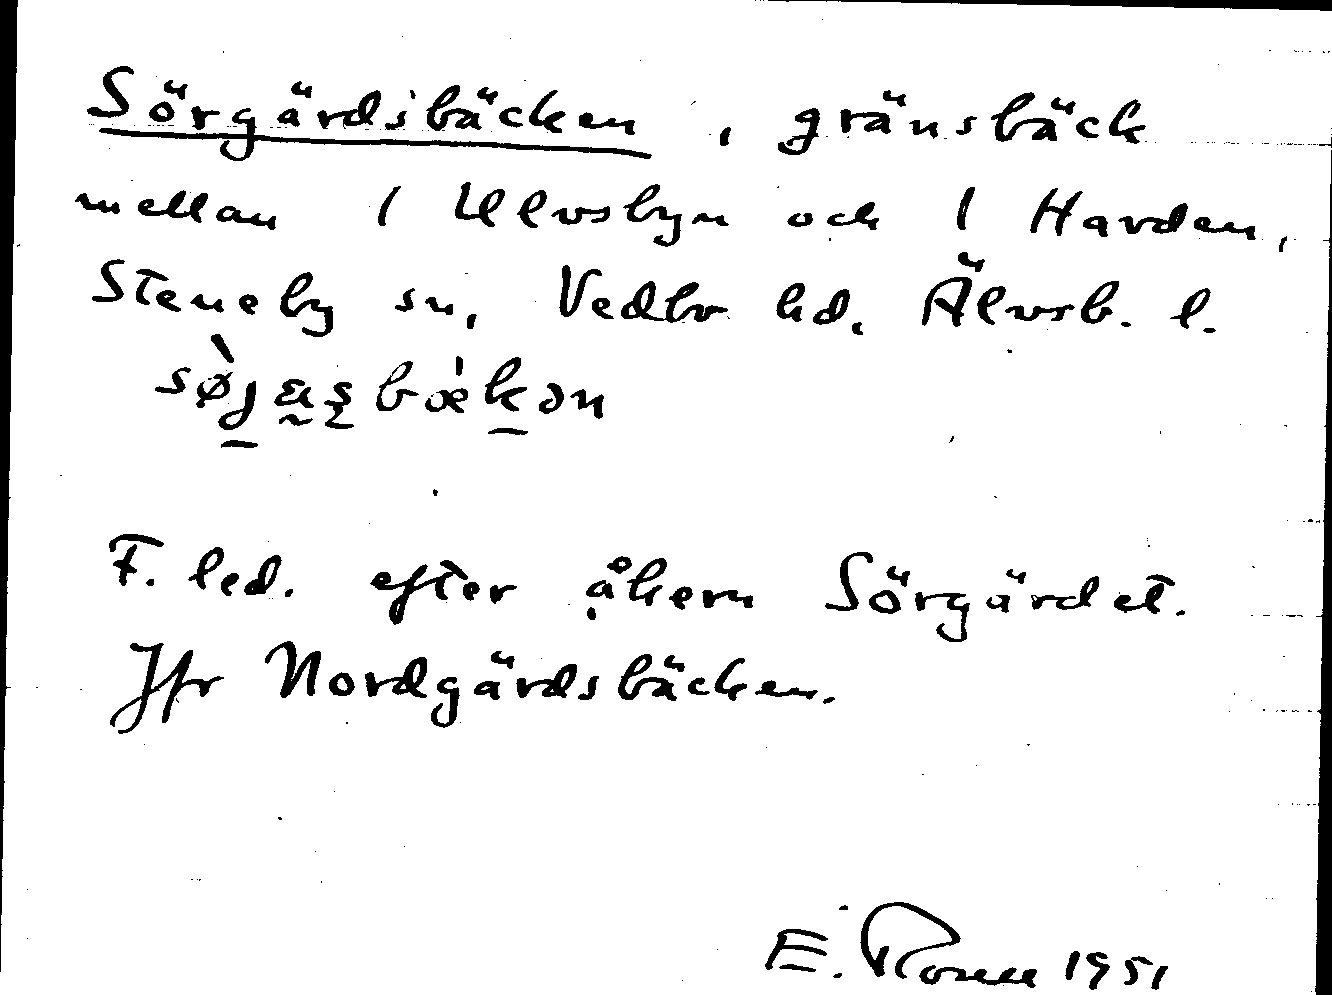 Sörgärdsbäcken, gränsbäck
mellan 1 Ulvsbyn och 1 Harden,
Steneby sn, Vedbo hd. Älvsb. l.
F. led. efter åkern Sörgärdet.
Jfr Nordgärdsbäcken.
E. 1951